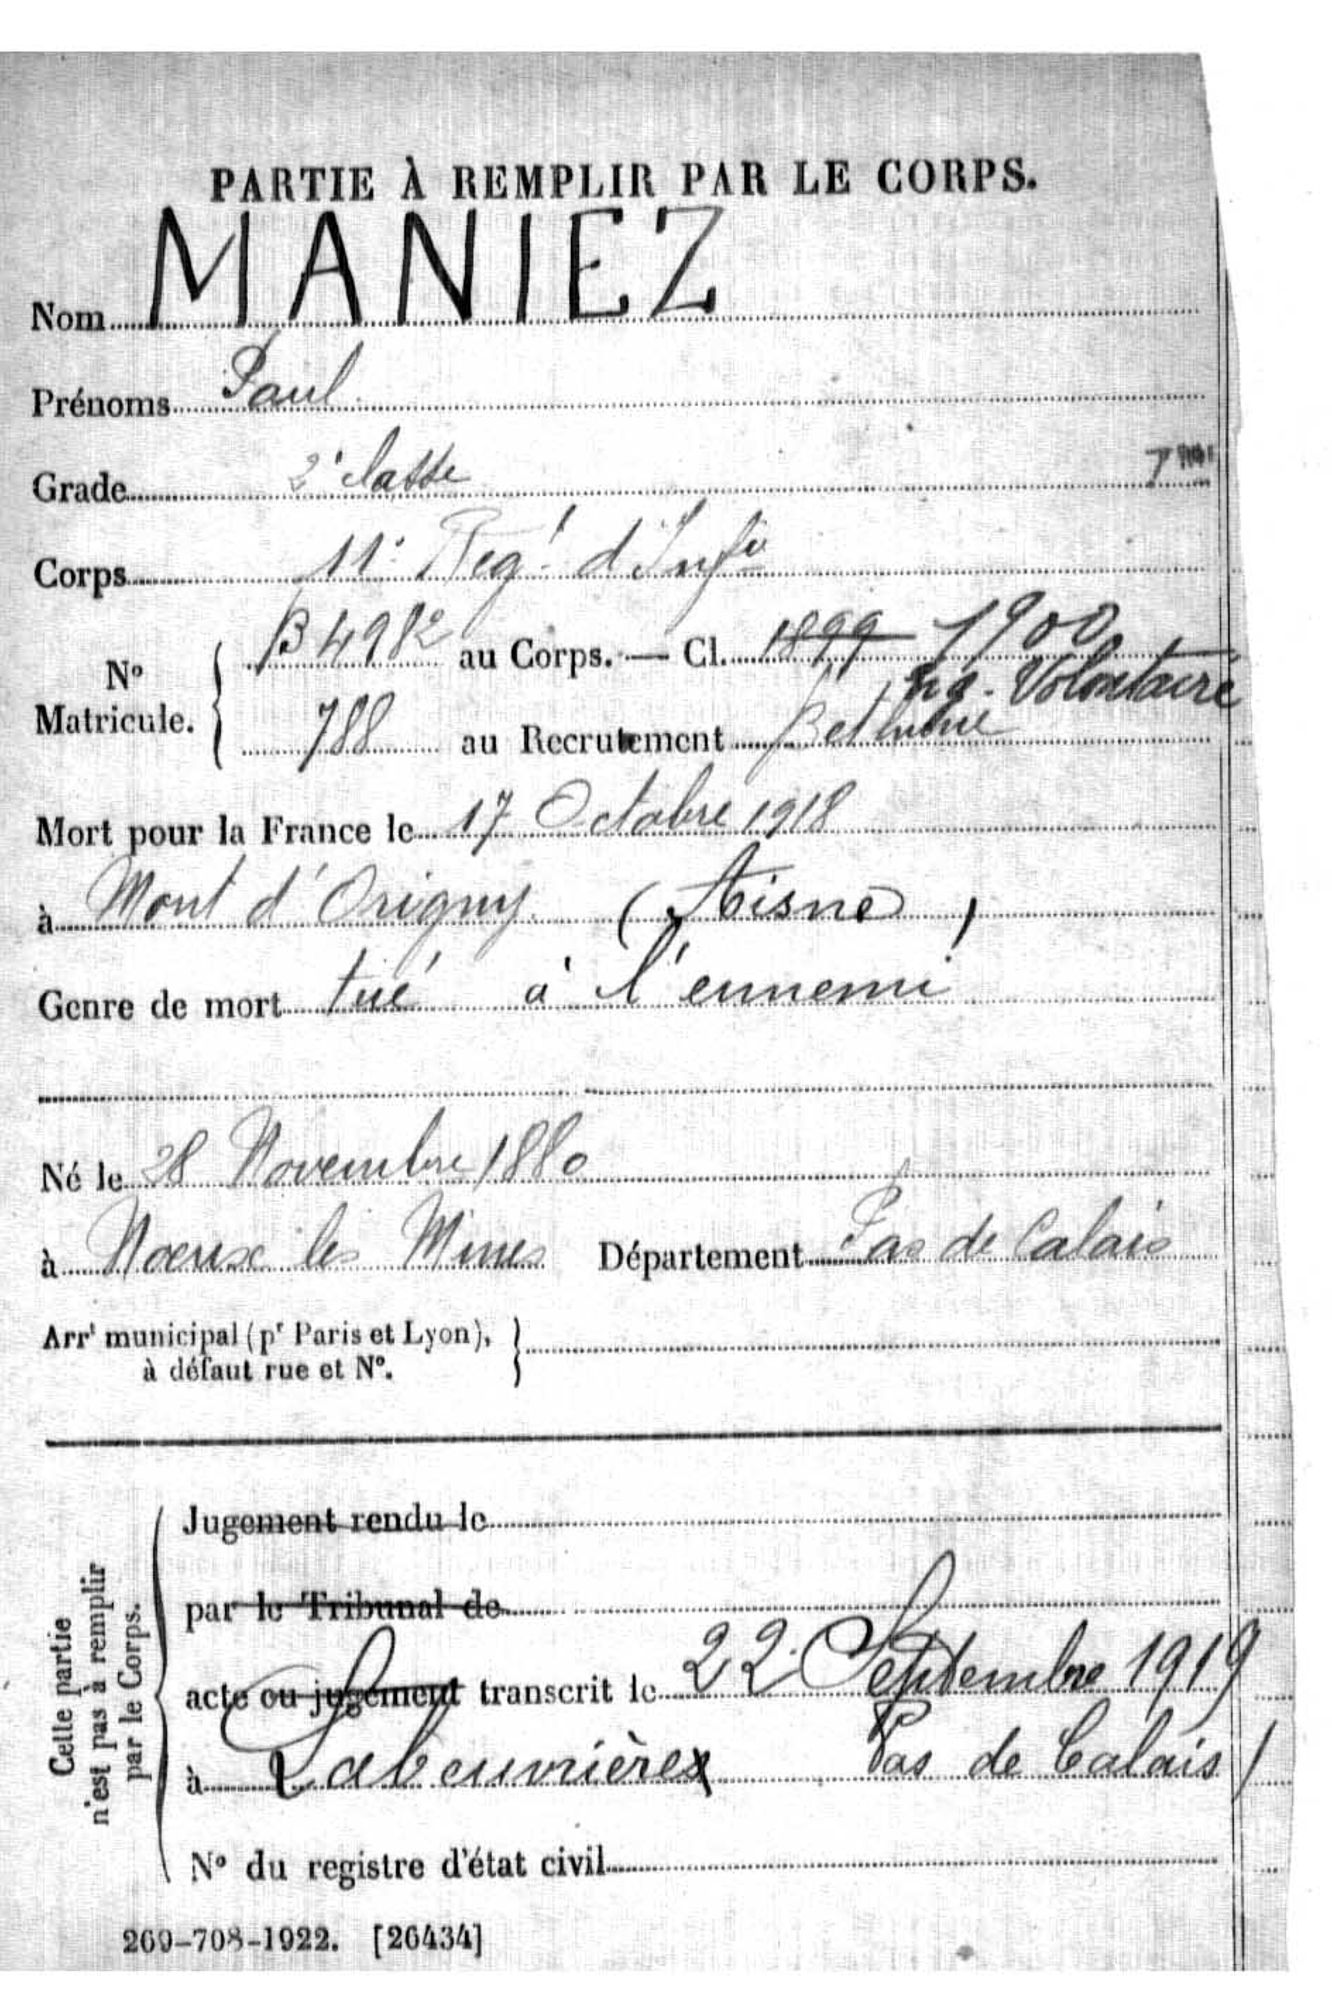 PARTIE À REMPLIR PAR LE CORPS.
Nom MANIEZ
Prénoms Paul
Grade 2e classe
Corps 11e Regt d'Infie
B 4982 au Corps. — Cl. 1899 1900
Eng. Volontaire
N° Matricule.
788 au Recrutement Bethune
Mort pour la France le 17 Octobre 1918
à Mont d'Origny (Aisne)
Genre de mort tué à l'ennemi
Né le 28 Novembre 1880
à Noeux les Mines Département Pas de Calais
Arrt municipal (pr Paris et Lyon),
à défaut rue et N°.
Cette partie
n'est pas à remplir
par le Corps.
Jugement rendu le
par le Tribunal de
acte ou jugement transcrit le 22 Septembre 1919
à Labeuvrière Pas de Calais)
N° du registre d'état civil
269-708-1922. [26434]